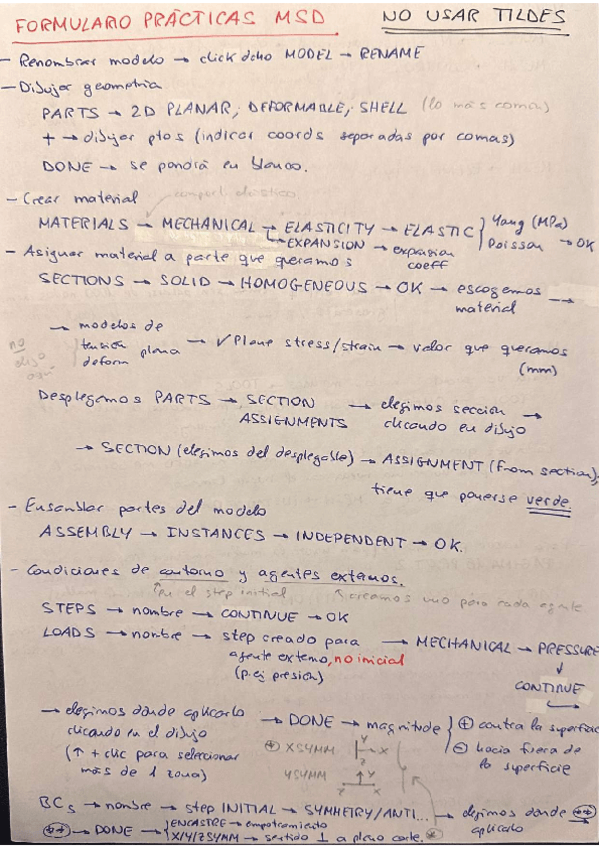 FORMULARIO PRÁCTICAS MSD NO USAR TILDES
- Renombrar modelo → click dcho MODEL → RENAME
- Dibujar geometria
PARTS → 2D PLANAR, DEFORMABLE, SHELL (lo mas comun)
+ → dibujar ptos (indicar coords separadas por comas)
DONE → se pondrà en blanco.
- Crear material comport. elastico
MATERIALS → MECHANICAL → ELASTICITY → ELASTIC } Young (MPa) Poisson → OK
↳ EXPANSION → expansion coeff
- Asignar material a parte que queramos
SECTIONS → SOLID → HOMOGENEOUS → OK → escogemos material →
→ modelos de tension deform plana → ✓ Plane stress/strain → valor que queramos (mm)
no dijo
Desplegamos PARTS → SECTION ASSIGNMENTS → elegimos seccion clicando en dibujo →
→ SECTION (elegimos del desplegable) → ASSIGNMENT (from section),
tiene que ponerse verde.
- Ensamblar partes del modelo
ASSEMBLY → INSTANCES → INDEPENDENT → OK.
- Condiciones de contorno y agentes externos.
↑ en el step initial ↑ creamos uno para cada agente
STEPS → nombre → CONTINUE → OK
LOADS → nombre → step creado para → MECHANICAL → PRESSURE
agente externo, no inicial ↓
(p.ej presion) CONTINUE →
→ elegimos donde aplicarlo → DONE → magnitude { ⊕ contra la superficie
clicando en el dibujo ⊖ hacia fuera de la superficie
(↑ + clic para seleccionar más de 1 zona)
⊛ XSYMM Y X
YSYMM Y X
BCs → nombre → step INITIAL → SYMMETRY/ANTI... → elegimos donde aplicarlo (**)
(**) → DONE → { ENCASTRE → empotramiento
X/Y/ZSYMM → sentido ⊥ a plano corte. ⊛